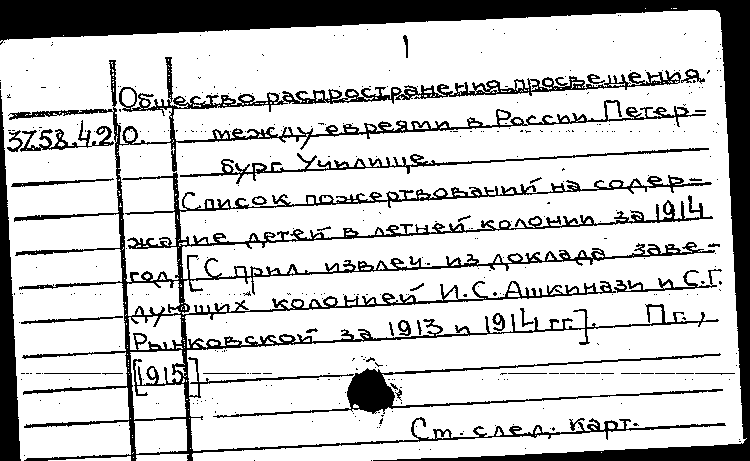 1
Общество распространения просвещения
37.58.4.210. между евреями в России. Петер-
бург. Училище.
Список пожертвований на содер-
жание детей в летней колонии за 1914
год. [С прил. извлеч. из доклада заве-
дующих колонией И.С. Ашкинази и С.Г.
Рынковской за 1913 и 1914 гг.]. Пг.,
[1915].
Ст. след. карт.